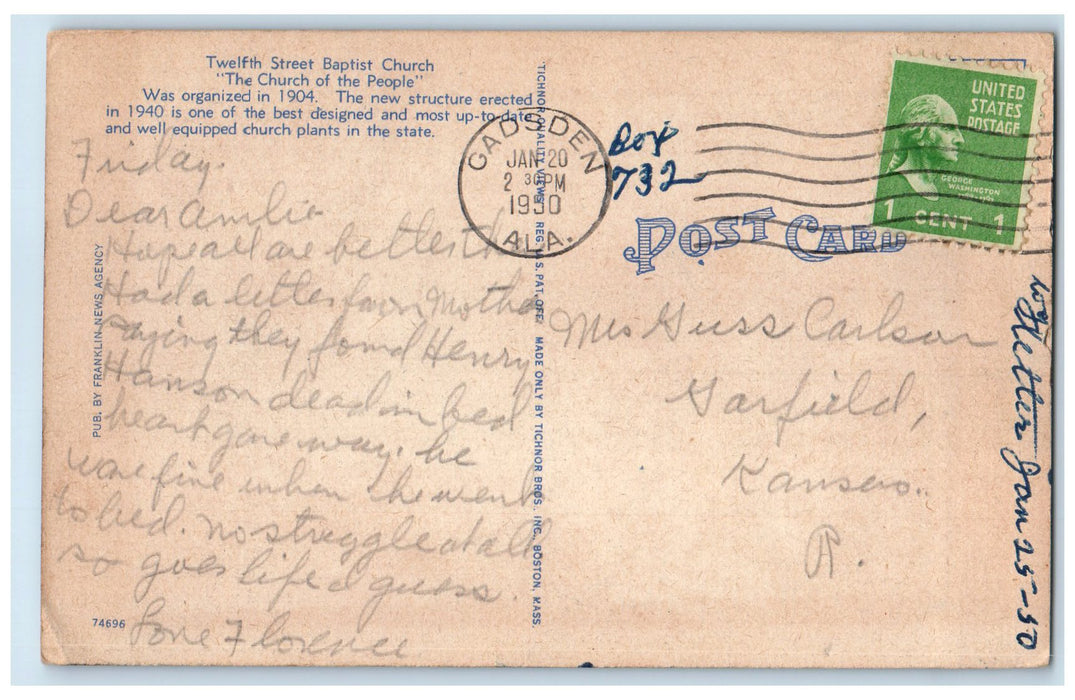 Twelfth Street Baptist Church
"The Church of the People"
Was organized in 1904. The new structure erected
in 1940 is one of the best designed and most up-to-date
and well equipped church plants in the state.
Friday.
Dear
Hope all are better
Had a letter from Mother
saying they found Henry
Hanson dead in bed
heart gave way. he
was fine when he went
to bed. no struggle at all
so goes life I guess.
Love Florence
74696
PUB. BY FRANKLIN NEWS AGENCY
TICHNOR QUALITY VIEWS REG. U. S. PAT. OFF. MADE ONLY BY TICHNOR BROS. INC., BOSTON, MASS.
GADSDEN
JAN 20
2 30 PM
1950
ALA.
Box
732
UNITED
STATES
POSTAGE
GEORGE
WASHINGTON
1 CENT 1
POST CARD
Mrs Guss Carlson
Garfield,
Kansas.
Letter Jan 25-50